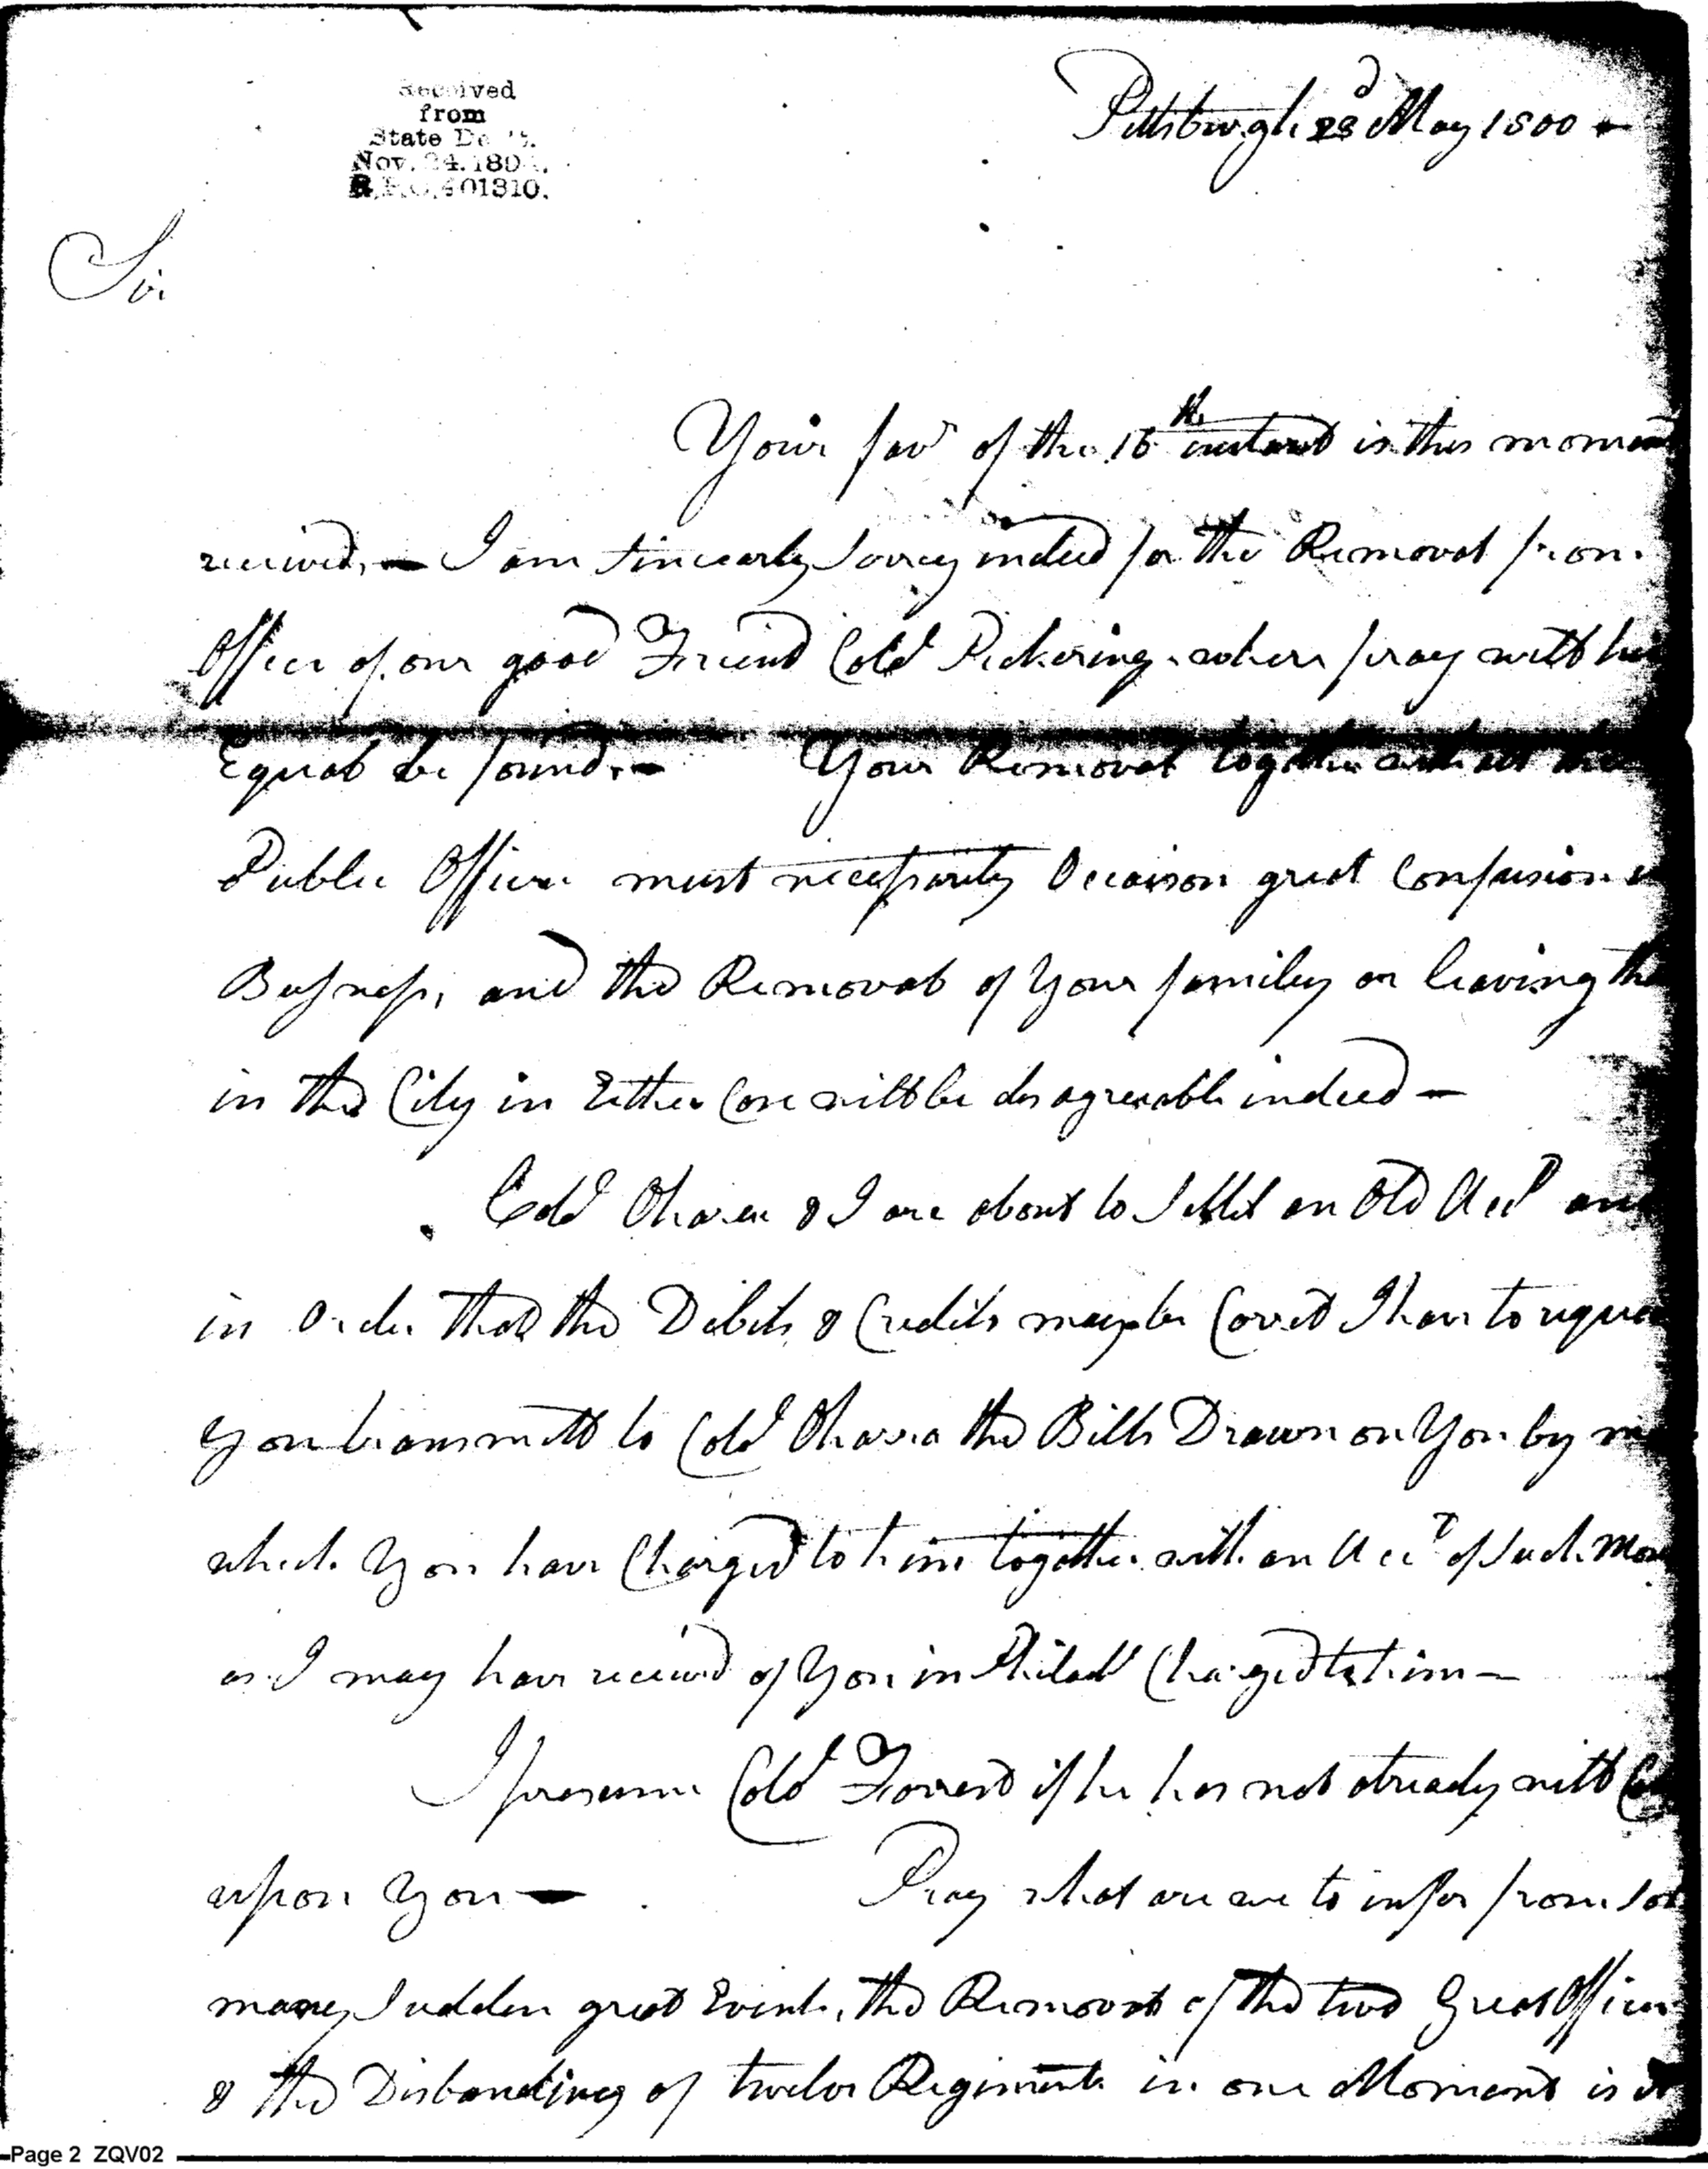 Received
from
State De
Nov. 24. 189
R.P.O. 401310.
Pittsburgh 23d May 1800 -
Sir
Your favr of the 16th instant is this moment
received, - I am sincearly sorrey indeed for the Removal from
Office of our good Friend Cold Pickering. where pray will his
Equal be found. - Your Removal together with all the
Public Offices must necessarily Occaison great Confusion in
Busness, and the Removal of Your family or leaving the
in the City in Either Case will be disagreeable indeed -
Cold Oharra & I are about to settle an Old Acct and
in Order that the Debits & Credits may be Corect I have to request
you transmitt to Cold Oharra the Bills Drawn on You by me
which You have Charged to him together with an Acct of such
as I may have received of You in Philada Charged to him -
I presume Cold Forrest if he has not already will Call
upon You - Pray what are we to infer from so
many sudden great Events, the Removal of the two Great Officers
& the Disbanding of twelve Regiments in one Moment is it
Page 2 ZQV02